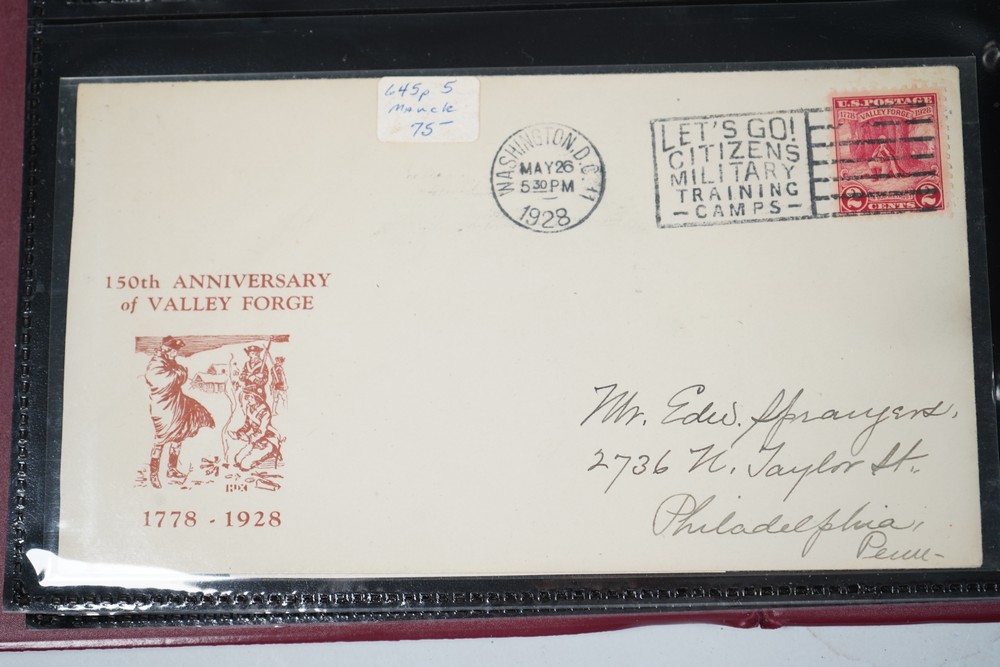 645p 5
Mauck
75-
WASHINGTON, D.C. 11
MAY 26
5 30 PM
1928
LET'S GO!
CITIZENS
MILITARY
TRAINING
- CAMPS -
U.S. POSTAGE
1778 VALLEY FORGE 1928
2 CENTS 2
150th ANNIVERSARY
of VALLEY FORGE
1778 - 1928
Mr. Edw. Sprangers.
2736 N. Taylor St.
Philadelphia,
Penn-